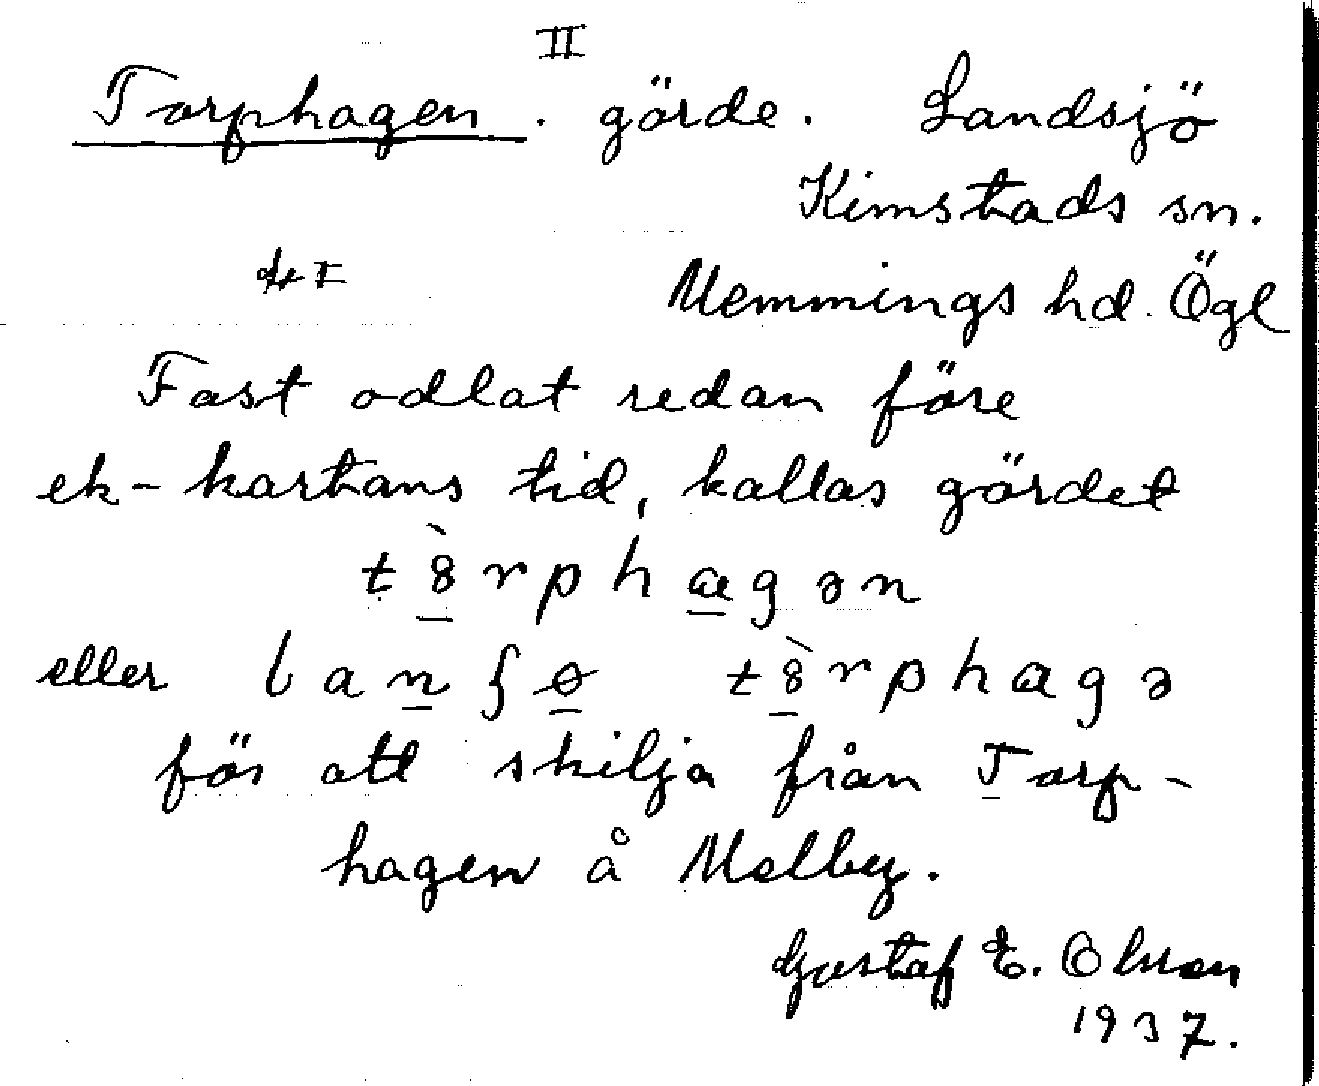 II
Torphagen. gärde. Landsjö
Kimstads sn.
Memmings hd. Ögl
Fast odlat redan före
ek-kartans tid, kallas gärdet
t8̀rphagən
eller lanʃɵ t8̀rphagə
för att skilja från Torp-
hagen å Melby.
Gustaf E. Olsson
1937.